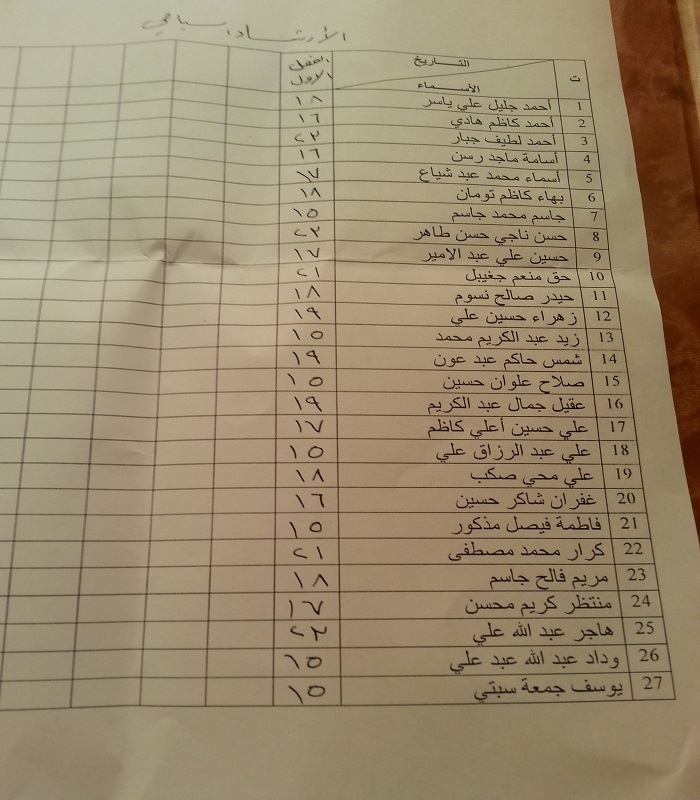 الأرشاد سياحي
ت التاريخ الأسماء الفصل الاول
1 أحمد جليل علي ياسر ١٨
2 أحمد كاظم هادي ١٦
3 أحمد لطيف جبار ٢٣
4 أسامة ماجد رسن ١٦
5 أسماء محمد عبد شياع ١٧
6 بهاء كاظم تومان ١٨
7 جاسم محمد جاسم ١٥
8 حسن ناجي حسن طاهر ٢٣
9 حسين علي عبد الامير ١٧
10 حق منعم جغيبل ٢١
11 حيدر صالح نسوم ١٨
12 زهراء حسين علي ١٩
13 زيد عبد الكريم محمد ١٥
14 شمس حاكم عبد عون ١٩
15 صلاح علوان حسين ١٥
16 عقيل جمال عبد الكريم ١٩
17 علي حسين أعلي كاظم ١٧
18 علي عبد الرزاق علي ١٥
19 علي محي صكب ١٨
20 غفران شاكر حسين ١٦
21 فاطمة فيصل مذكور ١٥
22 كرار محمد مصطفى ٢١
23 مريم فالح جاسم ١٨
24 منتظر كريم محسن ١٧
25 هاجر عبد الله علي ٢٣
26 وداد عبد الله عبد علي ١٥
27 يوسف جمعة سبتي ١٥